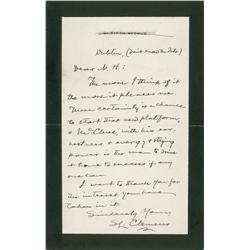 Dublin, (Don't know the date)
Dear N. H.:
The more I think of it
the more it pleases me.
There certainly is a chance
to start that new platform,
& McClure, with his ear-
nestness & energy & staying
power is the man to drive
it home to success if any
one can.
I want to thank you for
the interest you have
taken in it.
Sincerely Yours
SL Clemens